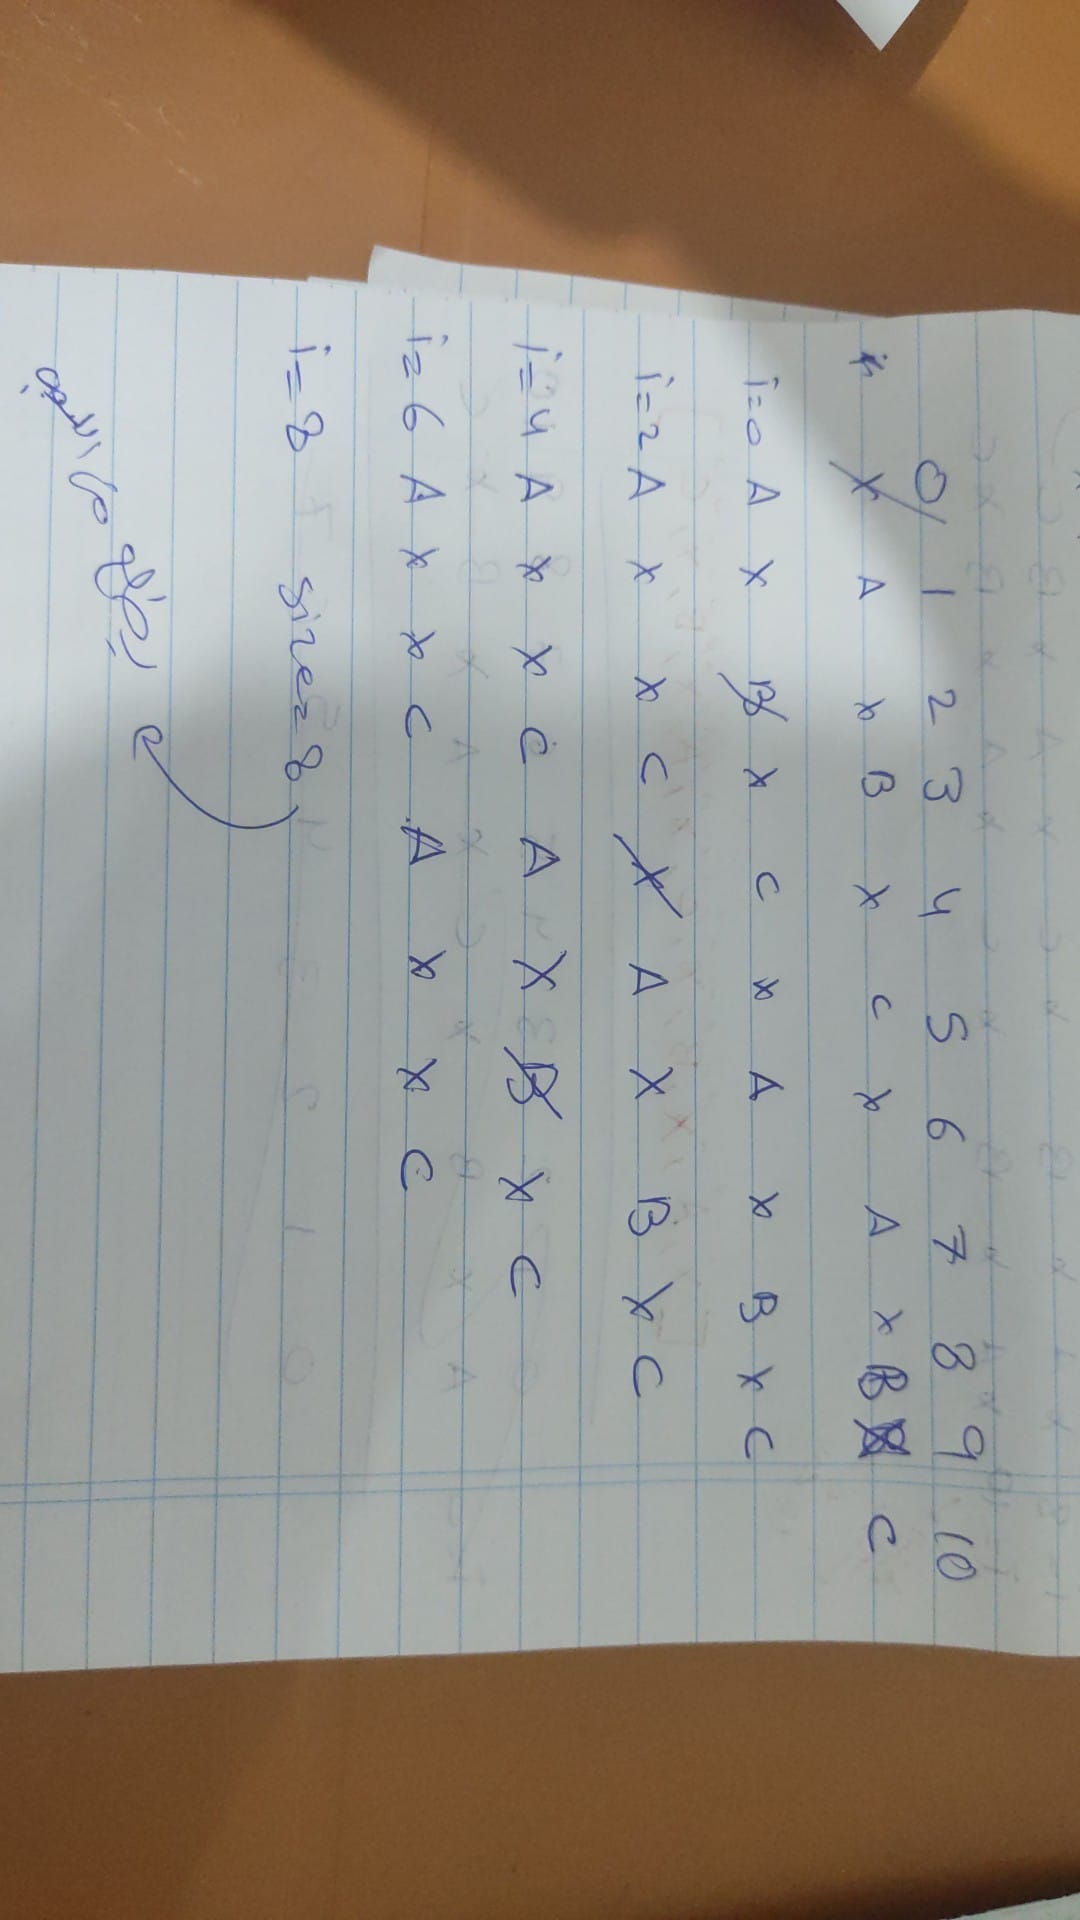 0 1 2 3 4 5 6 7 8 9 10
X A x B x C x A x B C
i=0 A X B x C x A x B x C
i=2 A x x C X A X B x C
i=4 A x x C A X B x C
i=6 A x x C A x x C
i=8 size=8